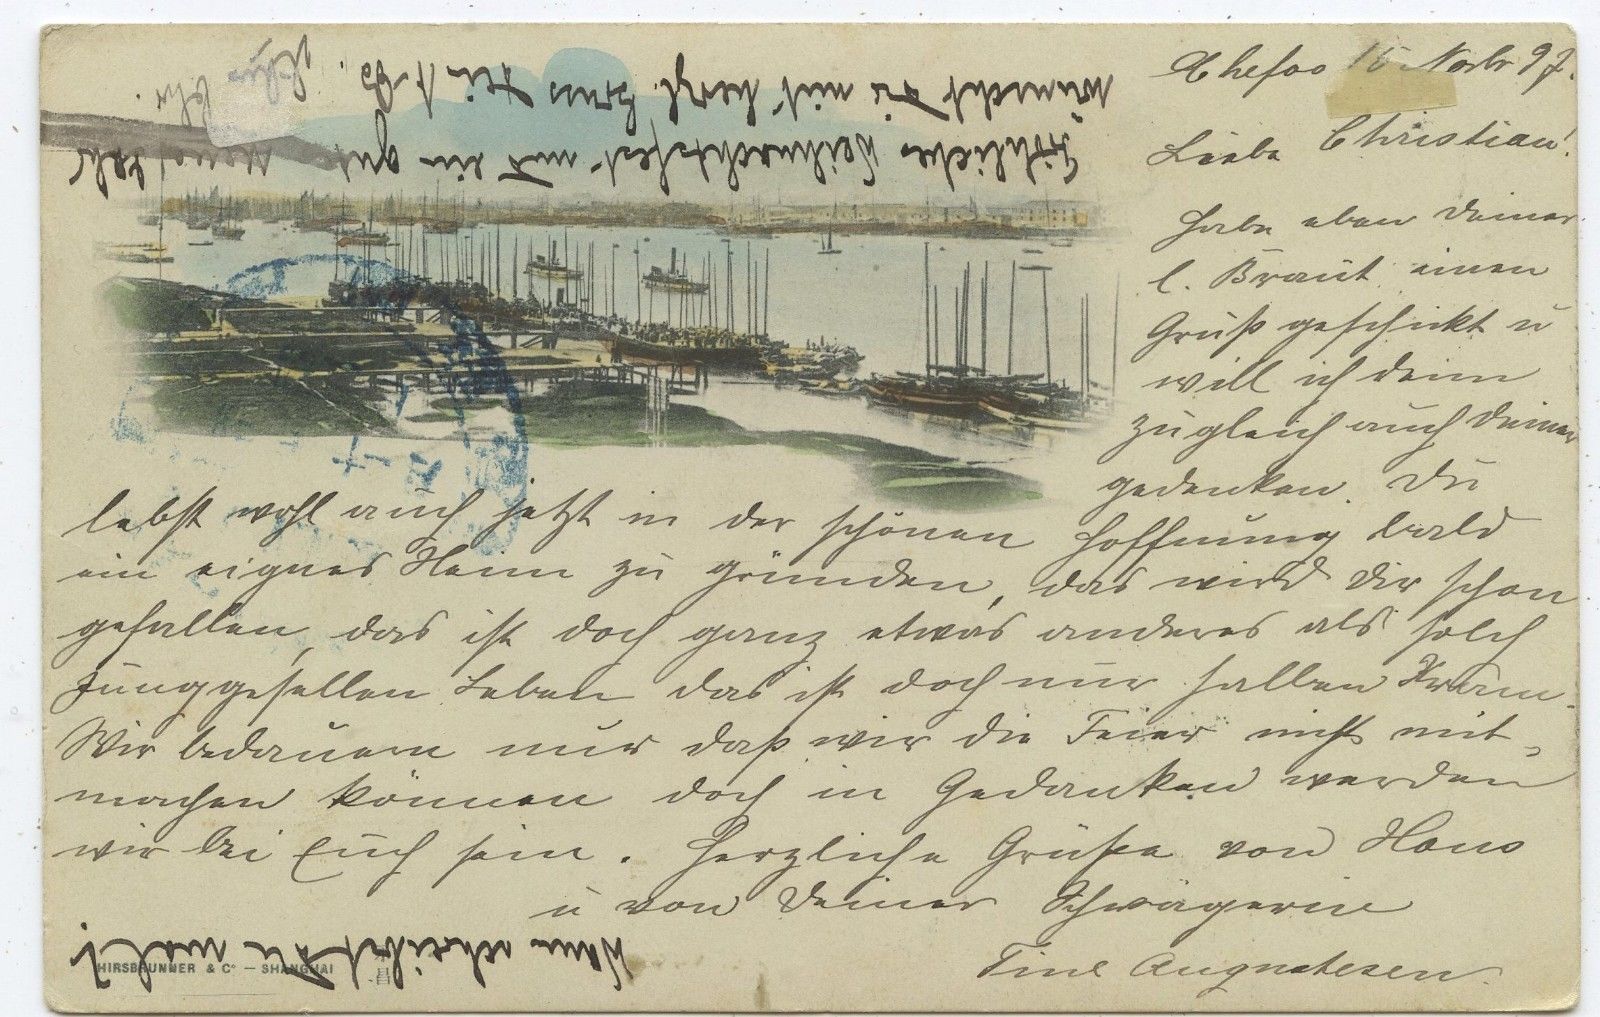 Chefoo 15 Novbr 97.
Liebe Christian!
Habe eben deiner
l. Braut einen
Gruß geschickt u
will ich denn
zugleich auch deiner
gedenken. Du
lebst wohl auch jetzt in der schönen Hoffnung bald
ein eignes Heim zu gründen, das wird dir schon
gefallen, das ist doch ganz etwas anderes als solch
Junggesellen Leben das ist doch nur halben Kram.
Wir bedauern nur daß wir die Feier nicht mit-
machen können doch in Gedanken werden
wir bei Euch sein. Herzliche Grüße von Hans
u von deiner Schwägerin
Tine Augustesen.
Fröhliches Weihnachtsfest und ein gutes neues Jahr
wünscht Dir mit herzl. Gruss Dein
Wann schreibst Du mal?
HIRSBRUNNER & Co – SHANGHAI